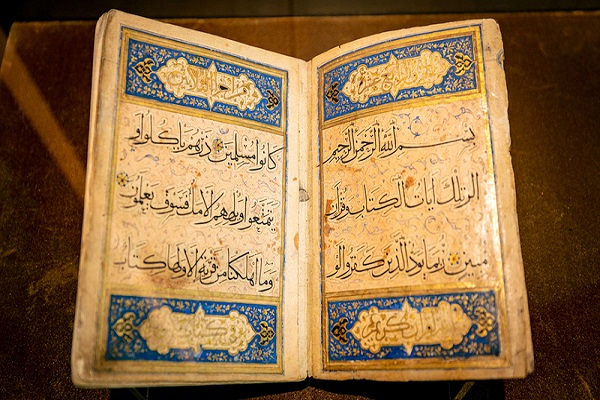 بسم الله الرحمن الرحيم
الر تلك آيات الكتاب وقرآن
مبين ربما يود الذين كفروا لو
كانوا مسلمين ذرهم ياكلوا و
يتمتعوا ويلههم الامل فسوف يعلمون
وما اهلكنا من قرية الا ولها كتاب